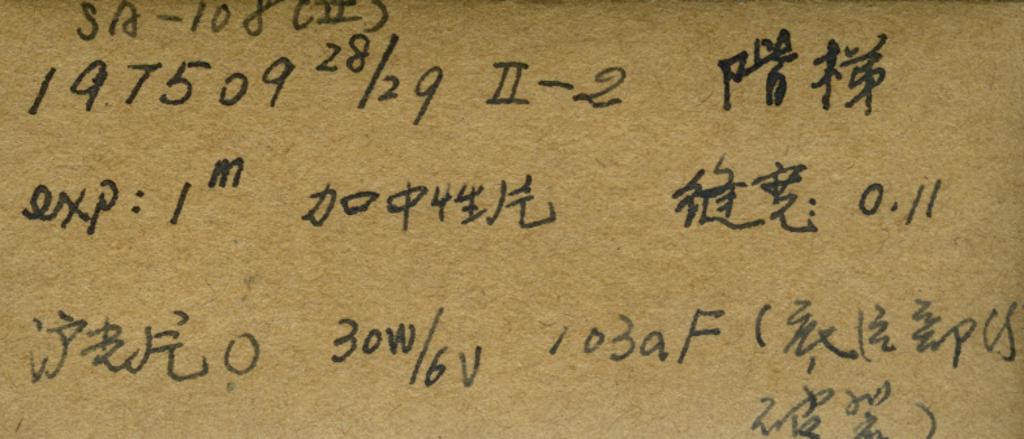 SA-108(II)
197509 28/29 II-2 階梯
exp: 1m 加中性片 缝宽: 0.11
滤光片 0 30W/6V 103aF (底片部分
破裂)